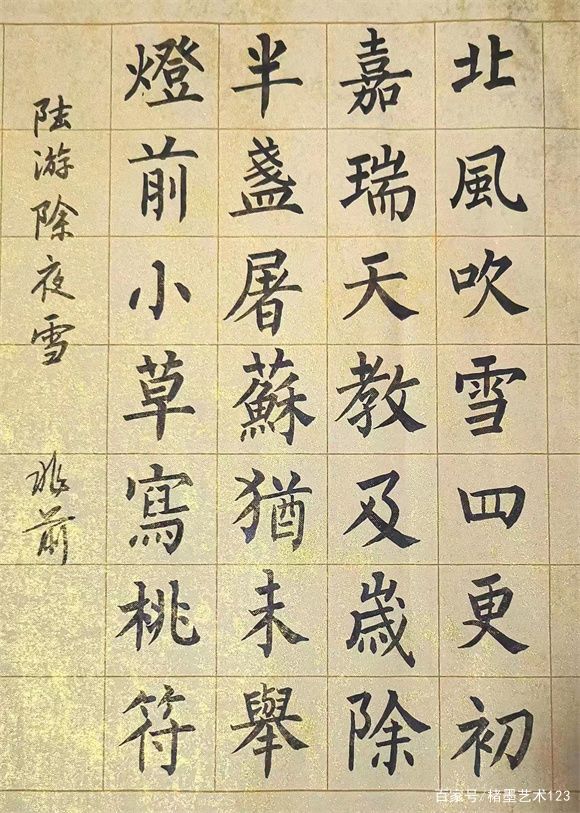 北風吹雪四更初
嘉瑞天教及歲除
半盞屠蘇猶未舉
燈前小草寫桃符
陸游除夜雪
百家号/楮墨艺术123